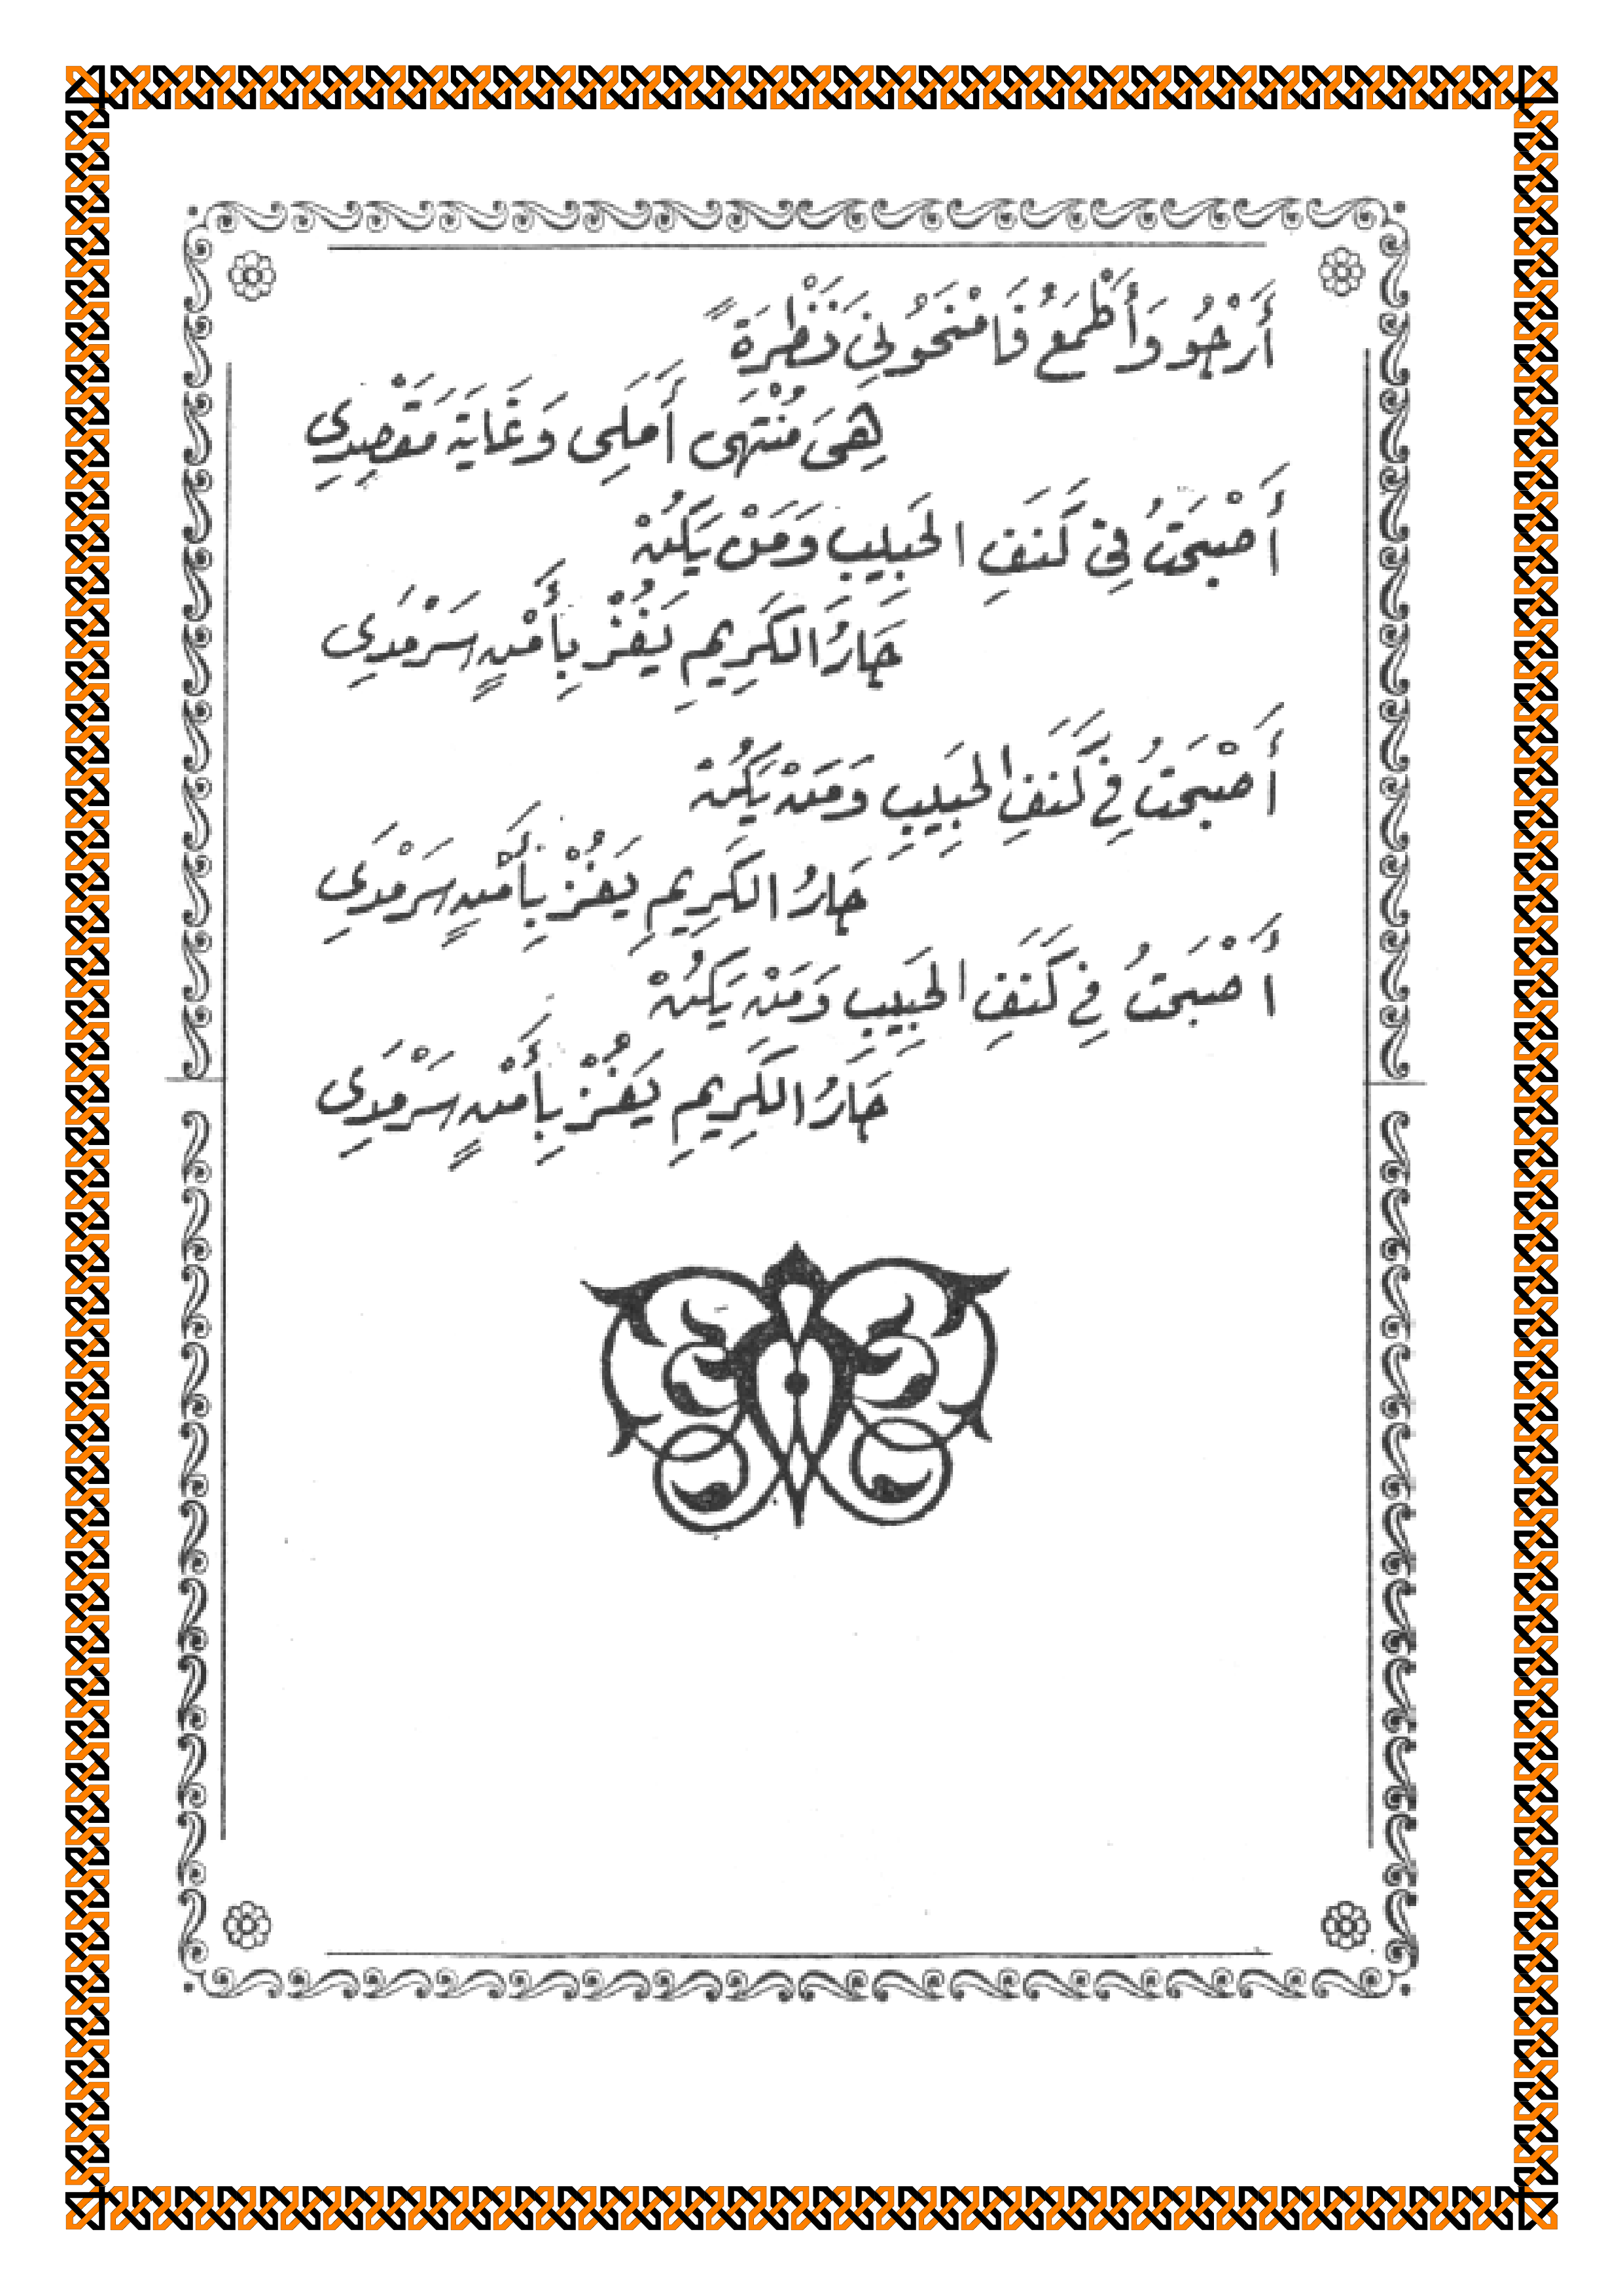 أَرْجُو وَأَطْمَعُ فَامْنَحُونِي نَظْرَةً
هِيَ مُنْتَهَى أَمَلِي وَغَايَةُ مَقْصِدِي
أَصْبَحْتُ فِي كَنَفِ الحَبِيبِ وَمَنْ يَكُنْ
جَارُ الكَرِيمِ يَفُزْ بِأَمْنٍ سَرْمَدِي
أَصْبَحْتُ فِي كَنَفِ الحَبِيبِ وَمَنْ يَكُنْ
جَارُ الكَرِيمِ يَفُزْ بِأَمْنٍ سَرْمَدِي
أَصْبَحْتُ فِي كَنَفِ الحَبِيبِ وَمَنْ يَكُنْ
جَارُ الكَرِيمِ يَفُزْ بِأَمْنٍ سَرْمَدِي